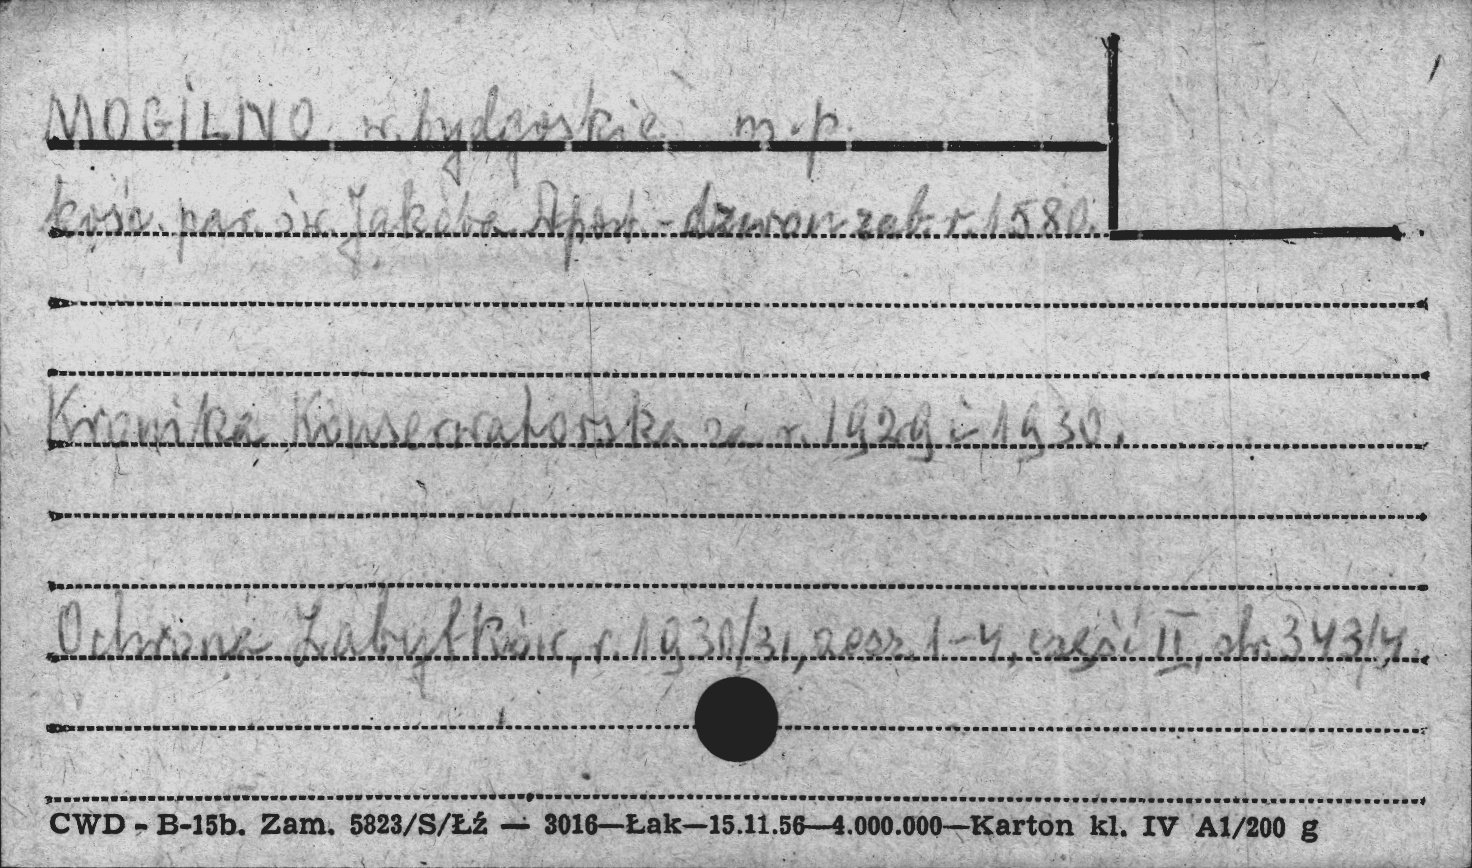 MOGILNO w. bydgoskie m. p.
kośc. par. św. Jakóba Apost. - dzwon zab. r. 1580.
Kronika Konserwatorska za r. 1929 i 1930.
Ochrona Zabytków, r. 1930/31, zesz. 1-4, część II, str. 343/4.
CWD - B-15b. Zam. 5823/S/Łź — 3016—Łak—15.11.56—4.000.000—Karton kl. IV A1/200 g